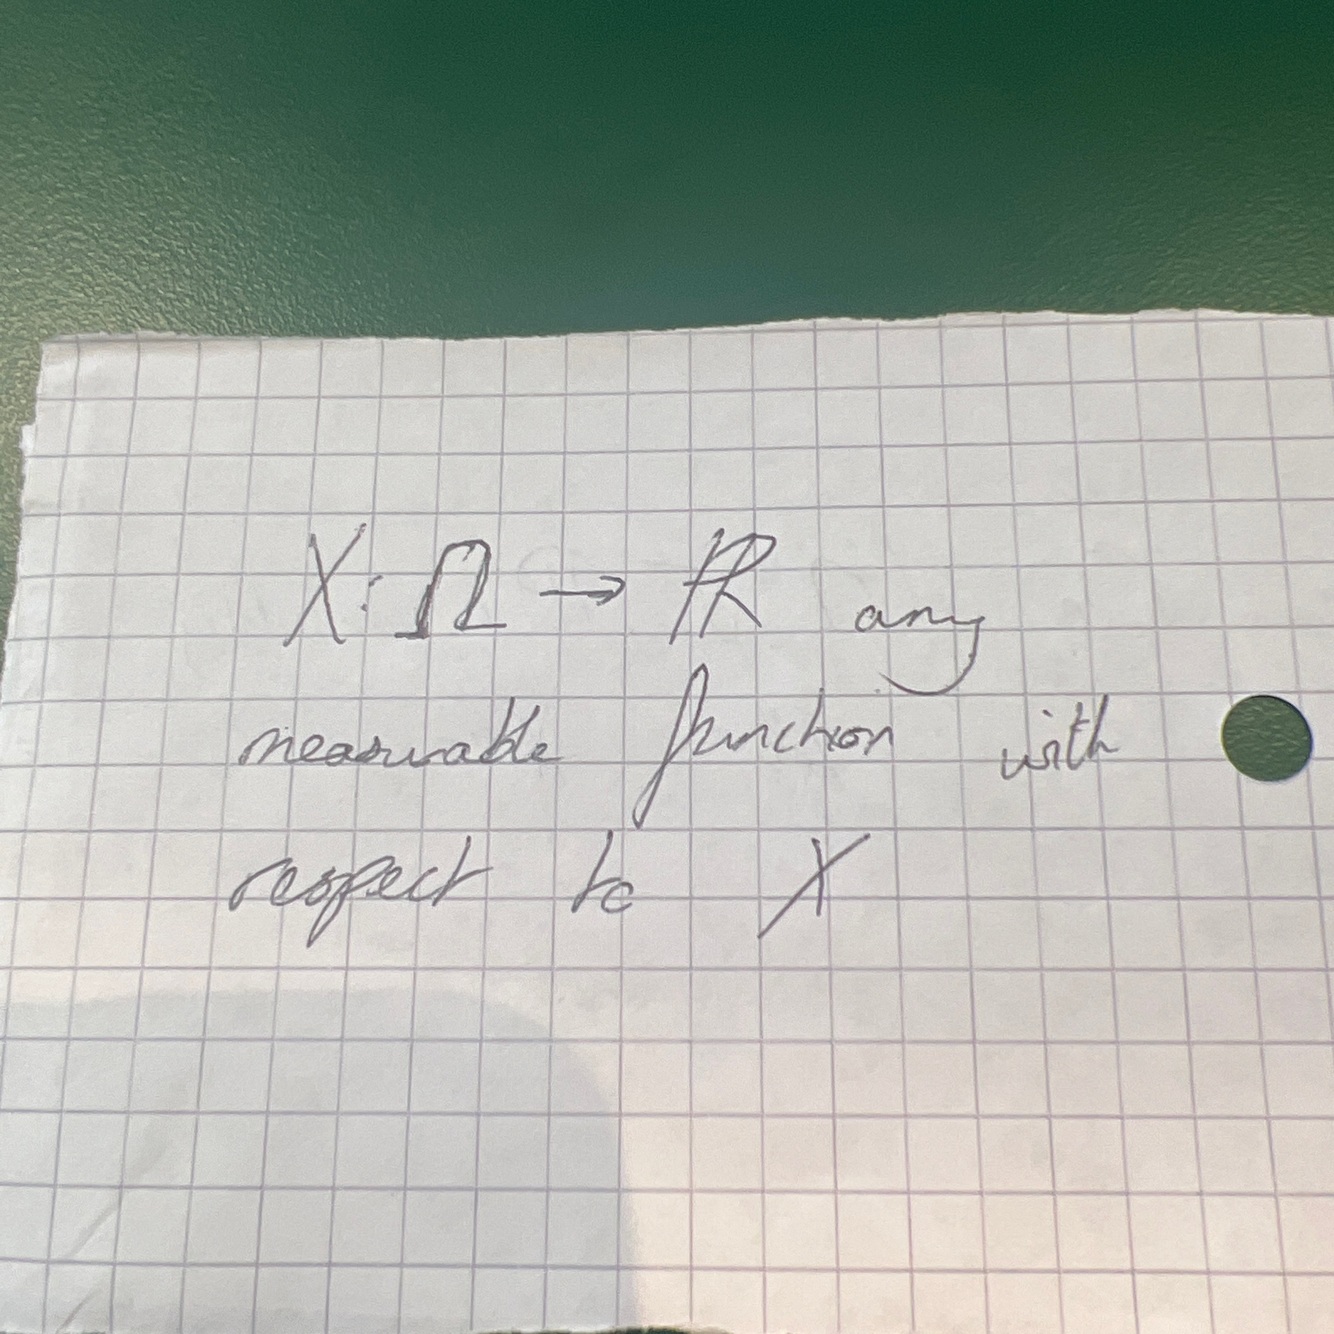 X: Ω → ℝ any
measurable function with
respect to X